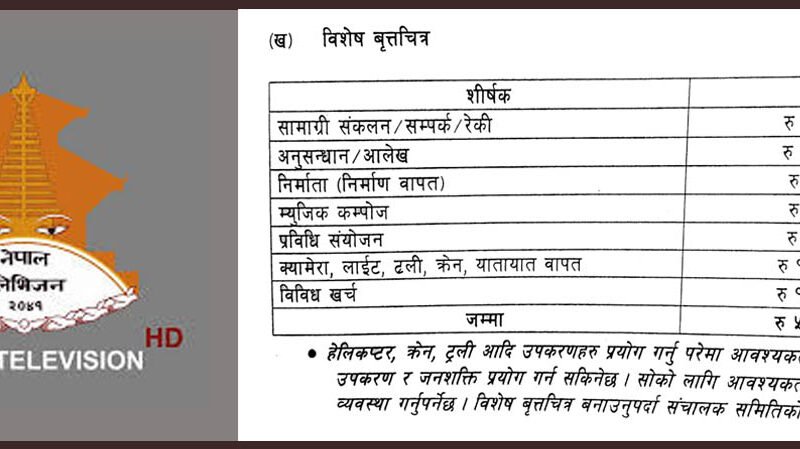 नेपाल
लिभिजन
२०४१
HD
TELEVISION
(ख) विशेष बृत्तचित्र
शीर्षक
सामाग्री संकलन/सम्पर्क/रेकी रु
अनुसन्धान/आलेख रु
निर्माता (निर्माण वापत) रु
म्युजिक कम्पोज रु
प्रविधि संयोजन रु
क्यामेरा, लाईट, ढली, क्रेन, यातायात वापत रु
विविध खर्च रु
जम्मा रु
• हेलिकप्टर, क्रेन, ट्रली आदि उपकरणहरु प्रयोग गर्नु परेमा आवश्यकत
उपकरण र जनशक्ति प्रयोग गर्न सकिनेछ । सोको लागि आवश्यकत
व्यवस्था गर्नुपर्नेछ । विशेष बृत्तचित्र बनाउनुपर्दा संचालक समितिको